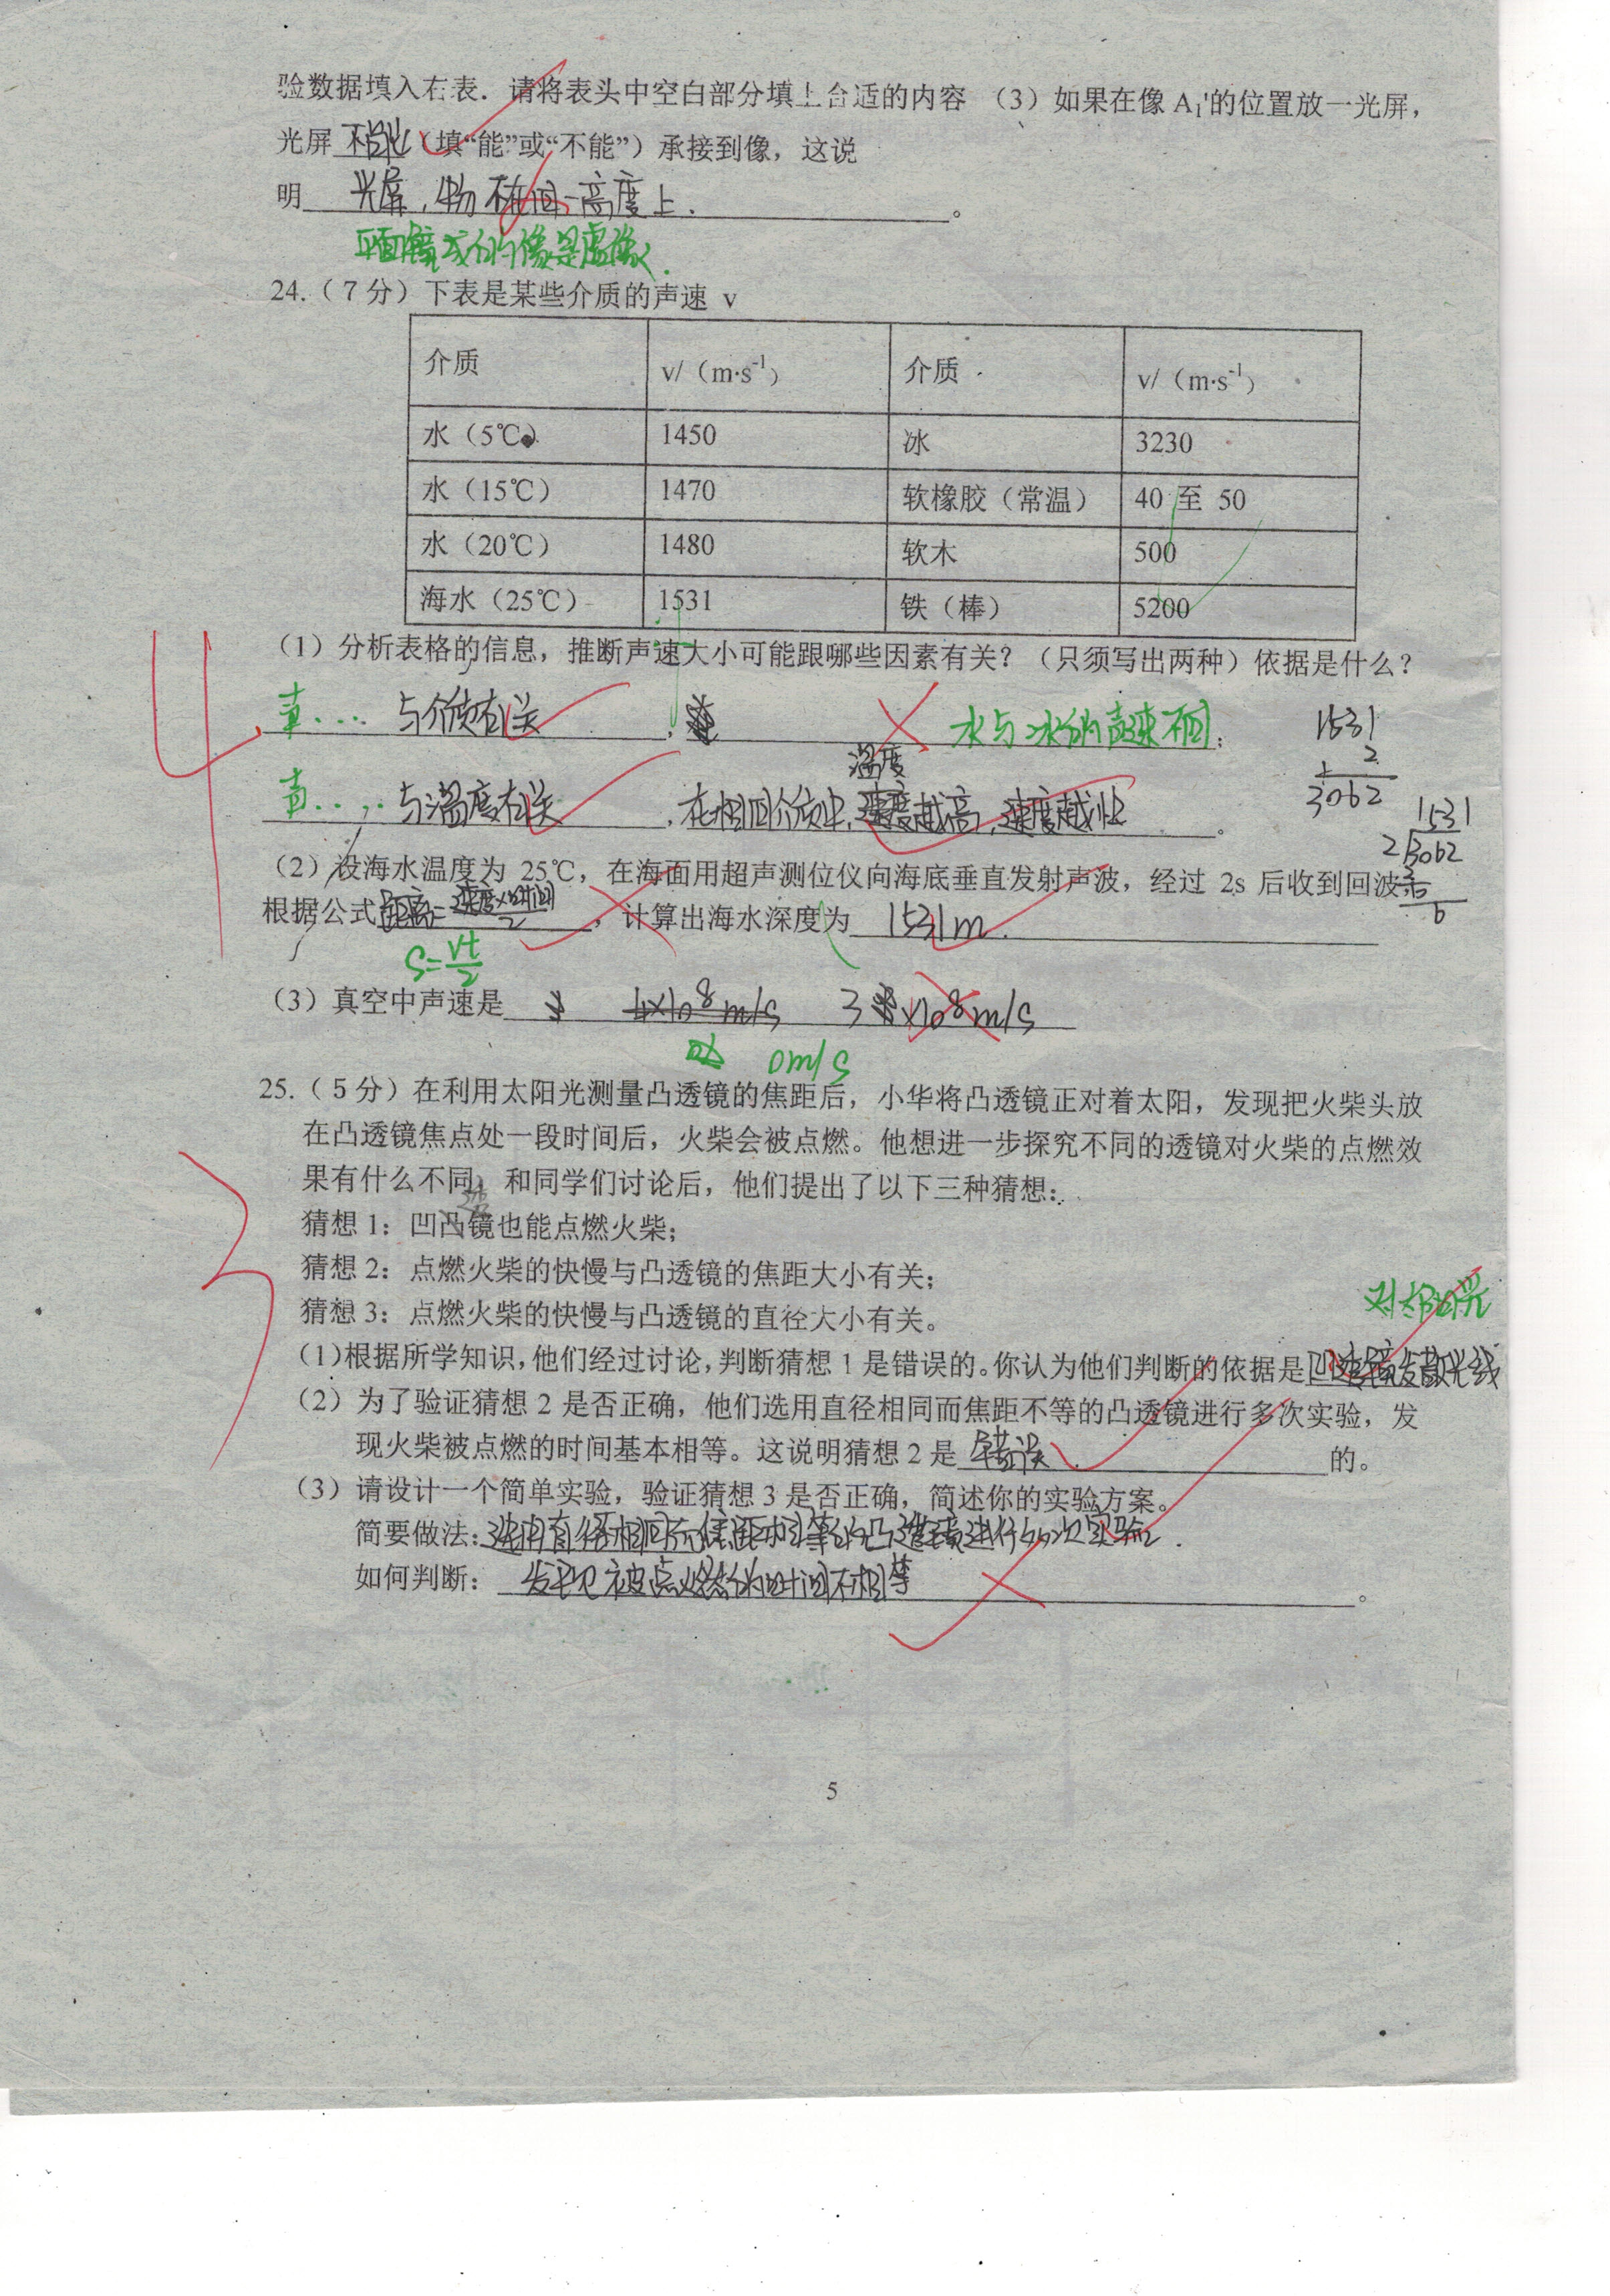 验数据填入右表．请将表头中空白部分填上合适的内容 （3）如果在像 A₁'的位置放一光屏，
光屏 不能（填“能”或“不能”）承接到像，这说
明 光屏、物不在同一高度上．。
平面镜成的像是虚像．
24.（7分）下表是某些介质的声速 v
介质 v/（m·s⁻¹） 介质 v/（m·s⁻¹）
水（5℃） 1450 冰 3230
水（15℃） 1470 软橡胶（常温） 40 至 50
水（20℃） 1480 软木 500
海水（25℃） 1531 铁（棒） 5200
（1）分析表格的信息，推断声速大小可能跟哪些因素有关？（只须写出两种）依据是什么？
与介质有关 ， 水与冰的声速不同；
1531
2
3062
温度
与温度有关 ，在相同介质中，速度越高，速度越快。
1531
2 3062
6
（2）设海水温度为 25℃，在海面用超声测位仪向海底垂直发射声波，经过 2s 后收到回波
根据公式 距离=速度×时间/2 ，计算出海水深度为 1531m．
S=vt/2
（3）真空中声速是 4×10⁸m/s 3×10⁸m/s
0m/s
25.（5分）在利用太阳光测量凸透镜的焦距后，小华将凸透镜正对着太阳，发现把火柴头放
在凸透镜焦点处一段时间后，火柴会被点燃。他想进一步探究不同的透镜对火柴的点燃效
果有什么不同，和同学们讨论后，他们提出了以下三种猜想：
透
猜想 1：凹凸镜也能点燃火柴；
猜想 2：点燃火柴的快慢与凸透镜的焦距大小有关；
猜想 3：点燃火柴的快慢与凸透镜的直径大小有关。
(1)根据所学知识，他们经过讨论，判断猜想 1 是错误的。你认为他们判断的依据是凹透镜发散光线
（2）为了验证猜想 2 是否正确，他们选用直径相同而焦距不等的凸透镜进行多次实验，发
现火柴被点燃的时间基本相等。这说明猜想 2 是 错误．的。
（3）请设计一个简单实验，验证猜想 3 是否正确，简述你的实验方案。
简要做法：选用直径不相同而焦距相等的凸透镜进行多次实验．
如何判断： 发现被点燃的时间不相等。
5